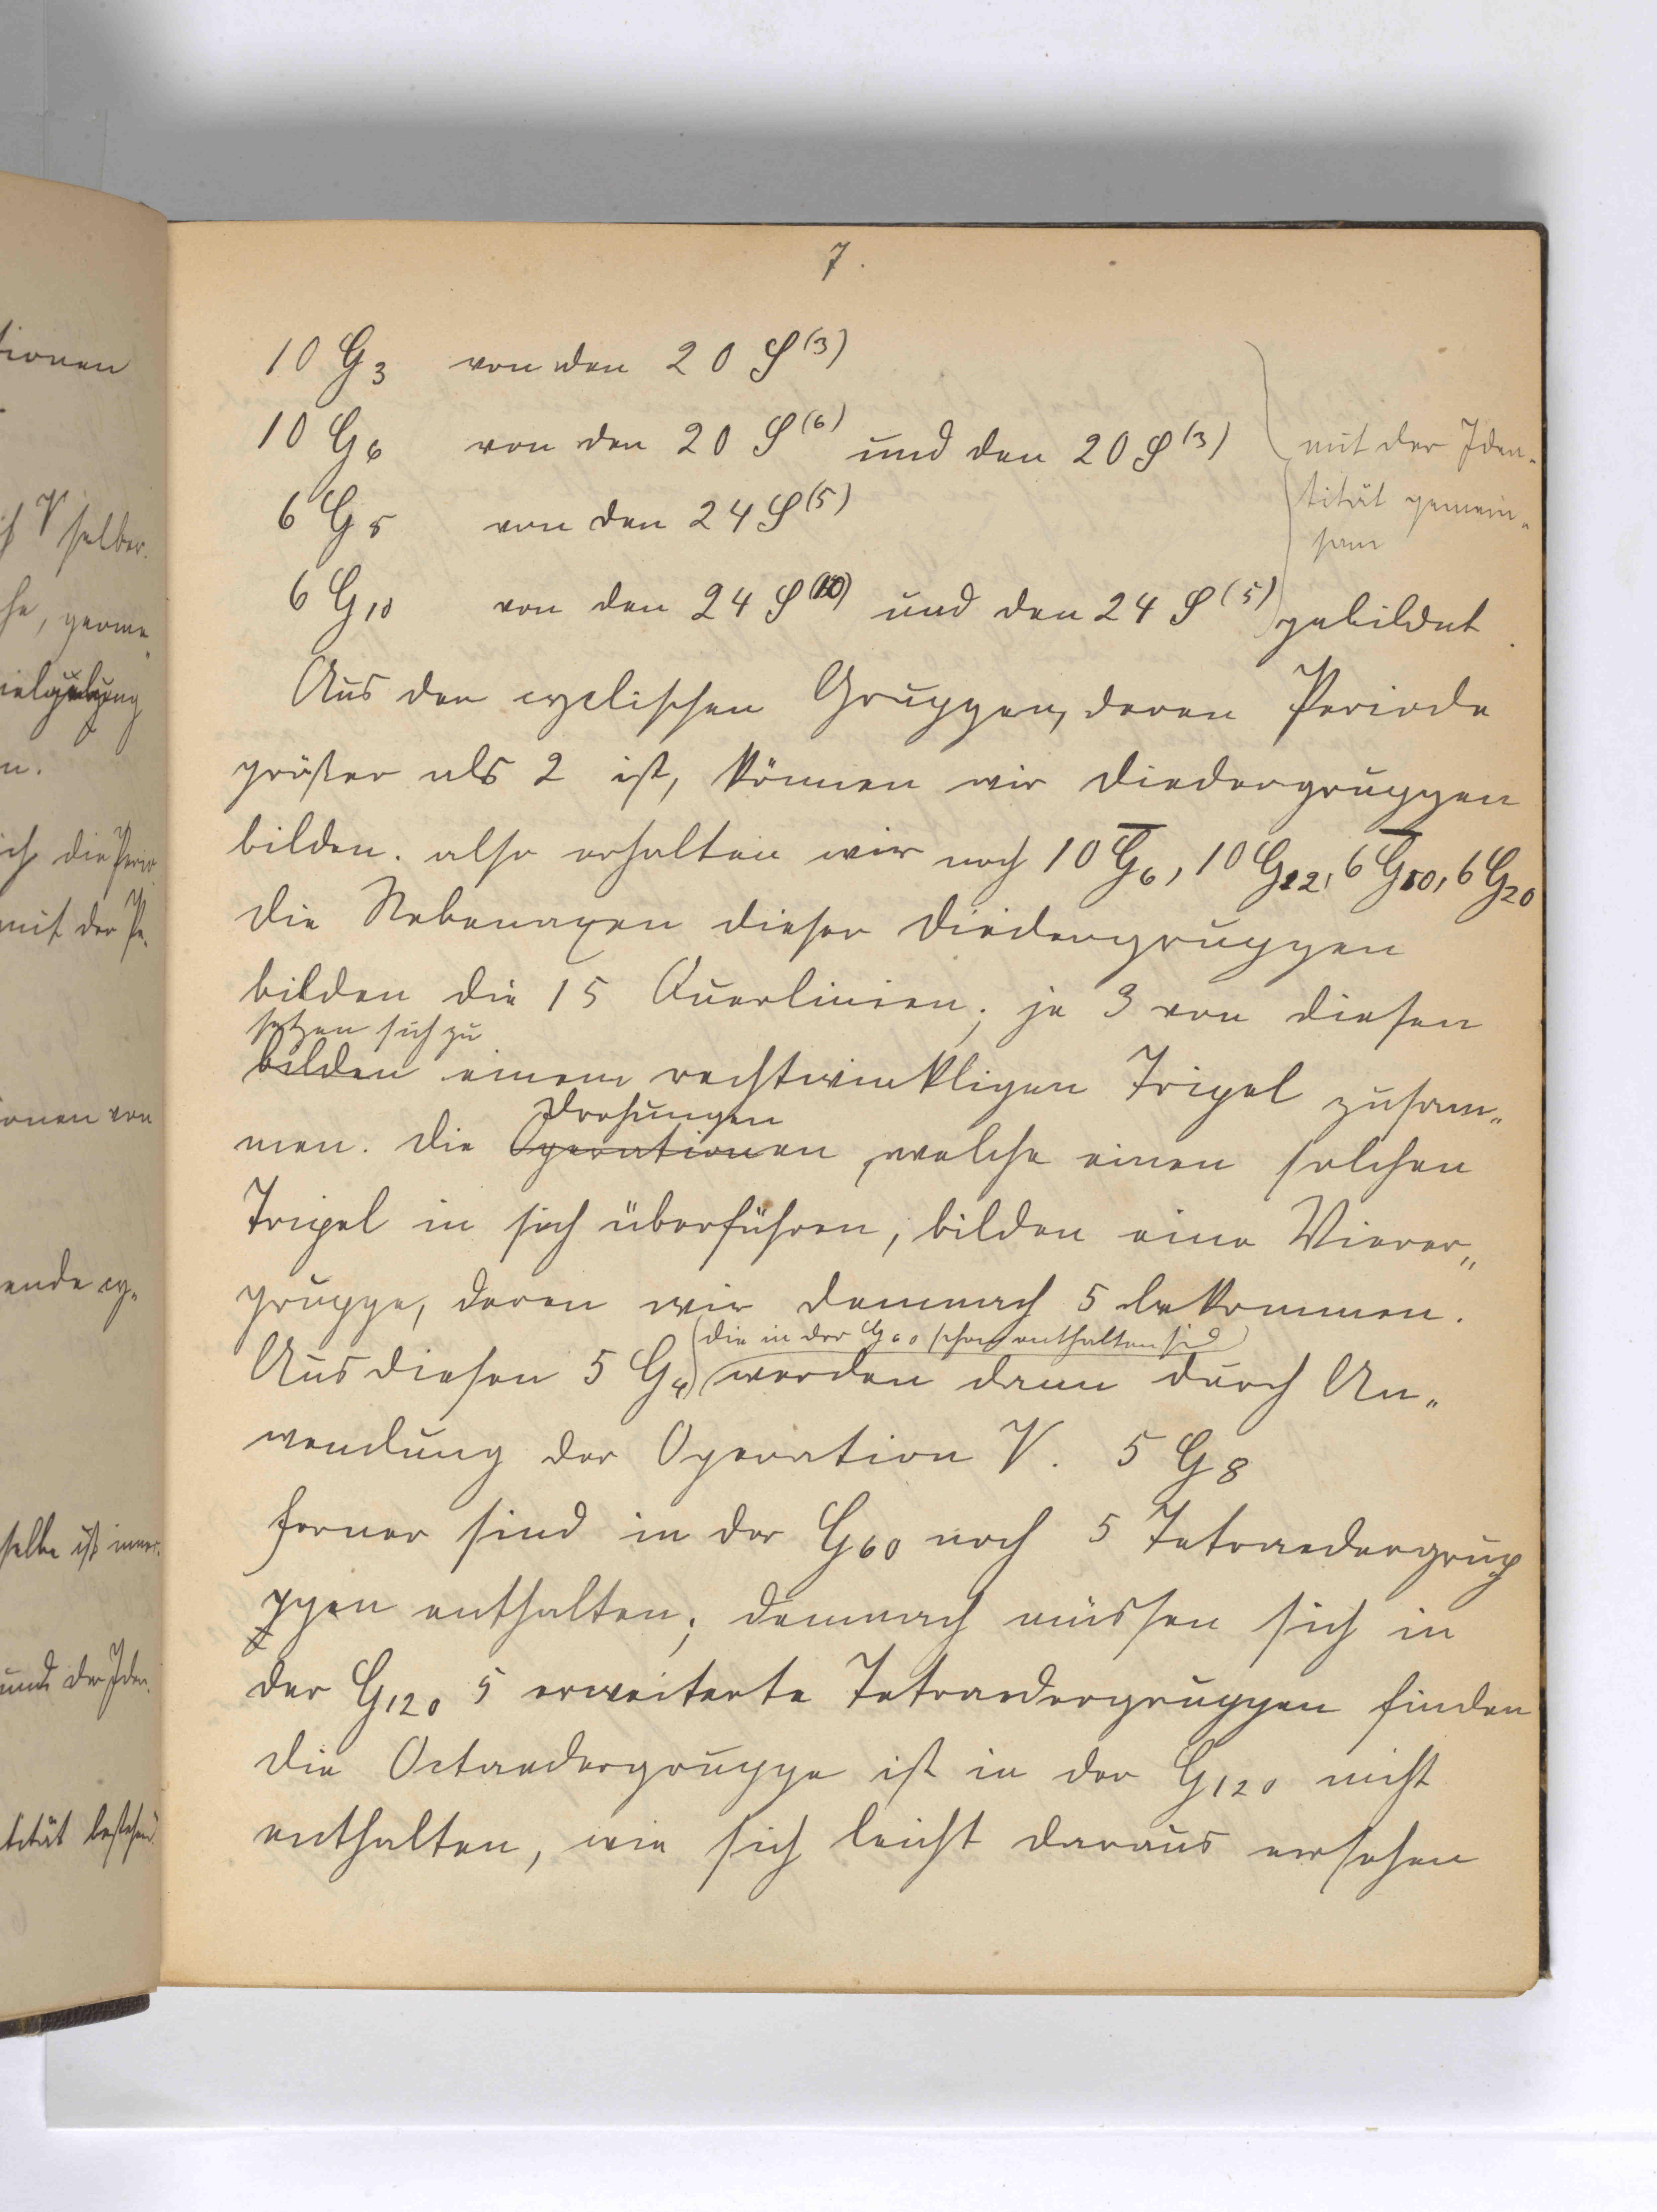 7.
10 G3 von den 20 S(3)
10 G6 von den 20 S(6) und den 20 S(3)
mit der Iden-
tität gemein-
sam
6 G5 von den 24 S(5)
6 G10 von den 24 S(10) und den 24 S(5) gebildet.
Aus den cyclischen Gruppen, deren Periode
größer als 2 ist, können wir Diedergruppen
bilden. also erhalten wir noch 10 G̅6, 10 G12, 6 G̅10, 6 G20
Die Nebenaxen dieser Diedergruppen
bilden die 15 Querlinien; je 3 von diesen
setzen sich zu
bilden einem rechtwinkligen Tripel zusam-
Drehungen
men. Die Operationen, welche einen solchen
Tripel in sich überführen, bilden eine Vierer-
gruppe, deren wir demnach 5 bekommen.
(die in der G60 schon enthalten sind)
Aus diesen 5 G4 werden dann durch An-
wendung der Operation V. 5 G8
Ferner sind in der G60 noch 5 Tetraedergrup
ppen enthalten; demnach müssen sich in
der G120 5 erweiterte Tetraedergruppen finden
Die Octaedergruppe ist in der G120 nicht
enthalten, wie sich leicht daraus ersehen
tionen
V selber.
he, germe
n.
ich die Perio
mit der Pe.
ionen von
ende cy-
selbe ist immer
und der Iden.
tität bestehend.